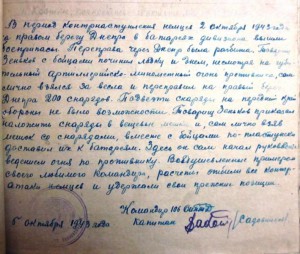 В период контрнаступления немцев 2 октября 1943 года
у правом берегу Днепра в батареях дивизиона вышли
боеприпасы. Переправа через Днепр была разбита. Товарищ
с бойцами починил лодку и днем, несмотря на губи-
тельный артиллерийско-минометный огонь противника, сам
лично взялся за весла и переправил на правый берег
Днепра 200 снарядов. Подвезти снаряды на передний край
обороны не было возможности. Товарищ приказал
наложить снаряды в вещевые мешки и, сам лично взял
мешок со снарядами, вместе с бойцами по-пластунски
доставил их к батареям. Здесь он сам начал руководить
ведением огня по противнику. Воодушевленные примером
своего любимого Командира, расчеты отбили все контр-
атаки немцев и удержали свои прежние позиции.
Командир 106
капитан
5 октября 1943 года